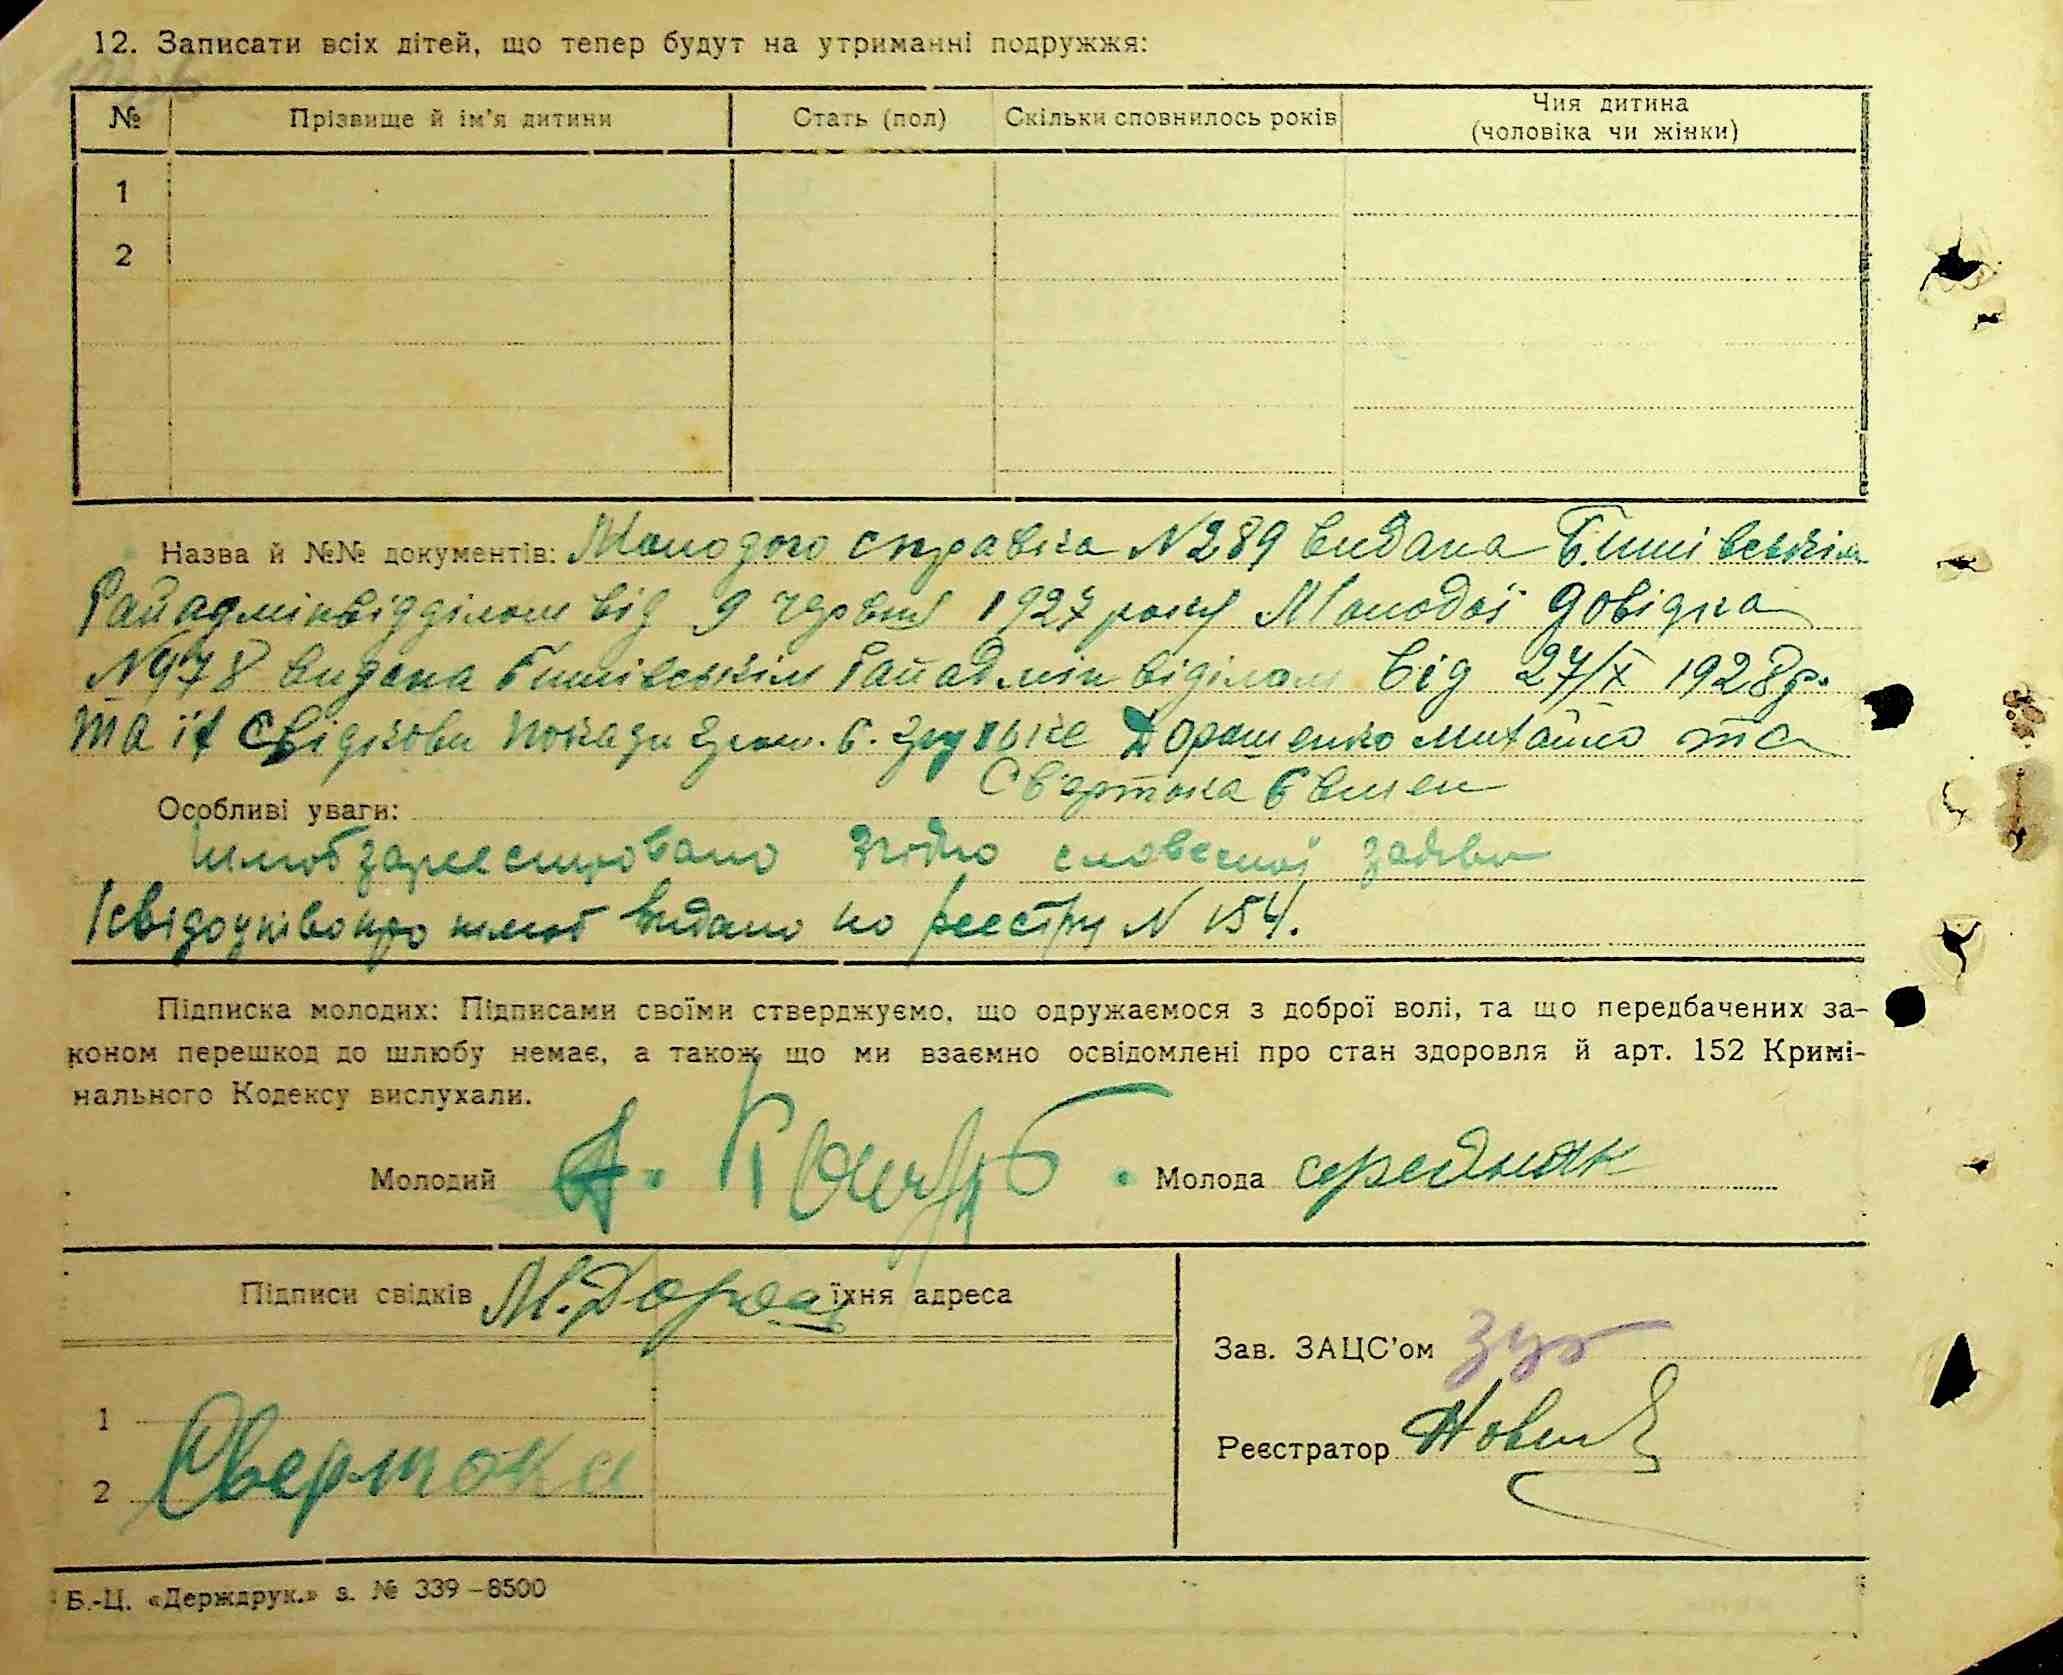 12. Записати всіх дітей, що тепер будут на утриманні подружжя:
№ Прізвище й ім'я дитини Стать (пол) Скільки сповнилось років Чия дитина
(чоловіка чи жінки)
1
2
Назва й №№ документів: Молодого справка N 289 видана Бишівським
Райадмінвідділом від 9 червня 1927 року Молодої довідка
N 978 видана Бишівським Райадмінвіділом від 27/X 1928 р.
та їх свідкови покази гром. с. Дорошенко Михайло та
Свертока Євмен
Особливі уваги:
Шлюб зареєстровано згідно словесної заяви
свідоцтво про шлюб видано по реєстру N 154.
Підписка молодих: Підписами своїми стверджуємо, що одружаємося з доброї волі, та що передбачених за-
коном перешкод до шлюбу немає, а також що ми взаємно освідомлені про стан здоровля й арт. 152 Кримі-
нального Кодексу вислухали.
Молодий Молода середняк
Підписи свідків М. Дорош їхня адреса
Зав. ЗАЦС'ом Зуб
1
Реєстратор
2 Свертока
Б.-Ц. «Держдрук.» з. № 339–8500